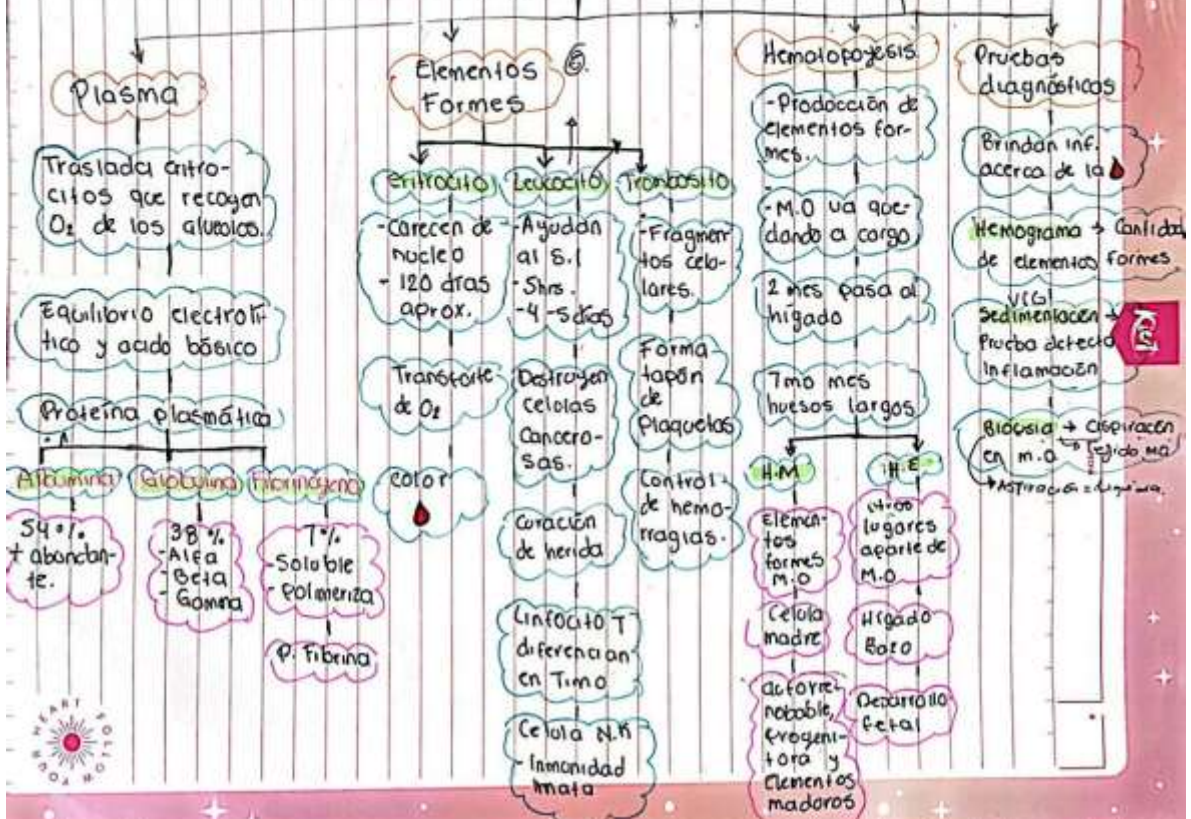 Plasma
Traslada eritro-
citos que recogen
O2 de los alveolos.
Equilibrio electrolí-
tico y acido básico
Proteína plasmática
Albumina
54%
+ abundan-
te.
Globulina
38%
-Alfa
-Beta
-Gamma
Fibrinógeno
7%
-Soluble
-Polimeriza
P. Fibrina
Elementos
Formes
6.
Eritrocito
-Carecen de
nucleo
- 120 días
aprox.
Transporte
de O2
color
Leucocito
-Ayudan
al S.I
-5hrs.
-4-5 días
Destruyen
celulas
Cancero-
sas.
Curación
de herida
Linfocito T
diferencian
en Timo
Celula N.K
- Inmunidad
inata
Trombosito
-Fragmen-
tos celu-
lares.
Forma
tapón
de
Plaquetas
Control
de hemo-
rragias.
Hematopoyesis
-Producción de
elementos for-
mes.
-M.O va que-
dando a cargo
2 mes pasa al
hígado
7mo mes
huesos largos
H.M
Elemen-
tos
formes
M.O
Celula
madre
autorre-
nobable,
progeni-
tora y
Elementos
maduros
H.E
otros
lugares
aparte de
M.O
Hígado
Bazo
Desarrollo
fetal
Pruebas
diagnósticas
Brindan inf.
acerca de la
Hemograma → Cantidad
de elementos formes
VSG
Sedimentación →
Prueba detecta
Inflamación
Biopsia → aspiración
en m.o tejido
Aspiración =
FOLLOW YOUR HEART